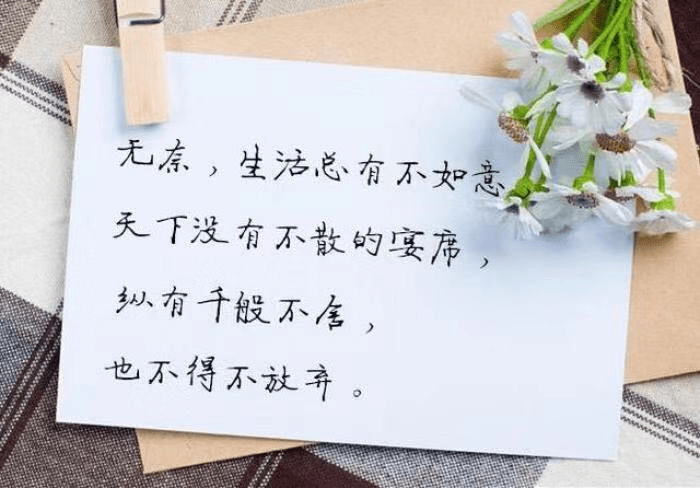 无奈，生活总有不如意，
天下没有不散的宴席，
纵有千般不舍，
也不得不放弃。